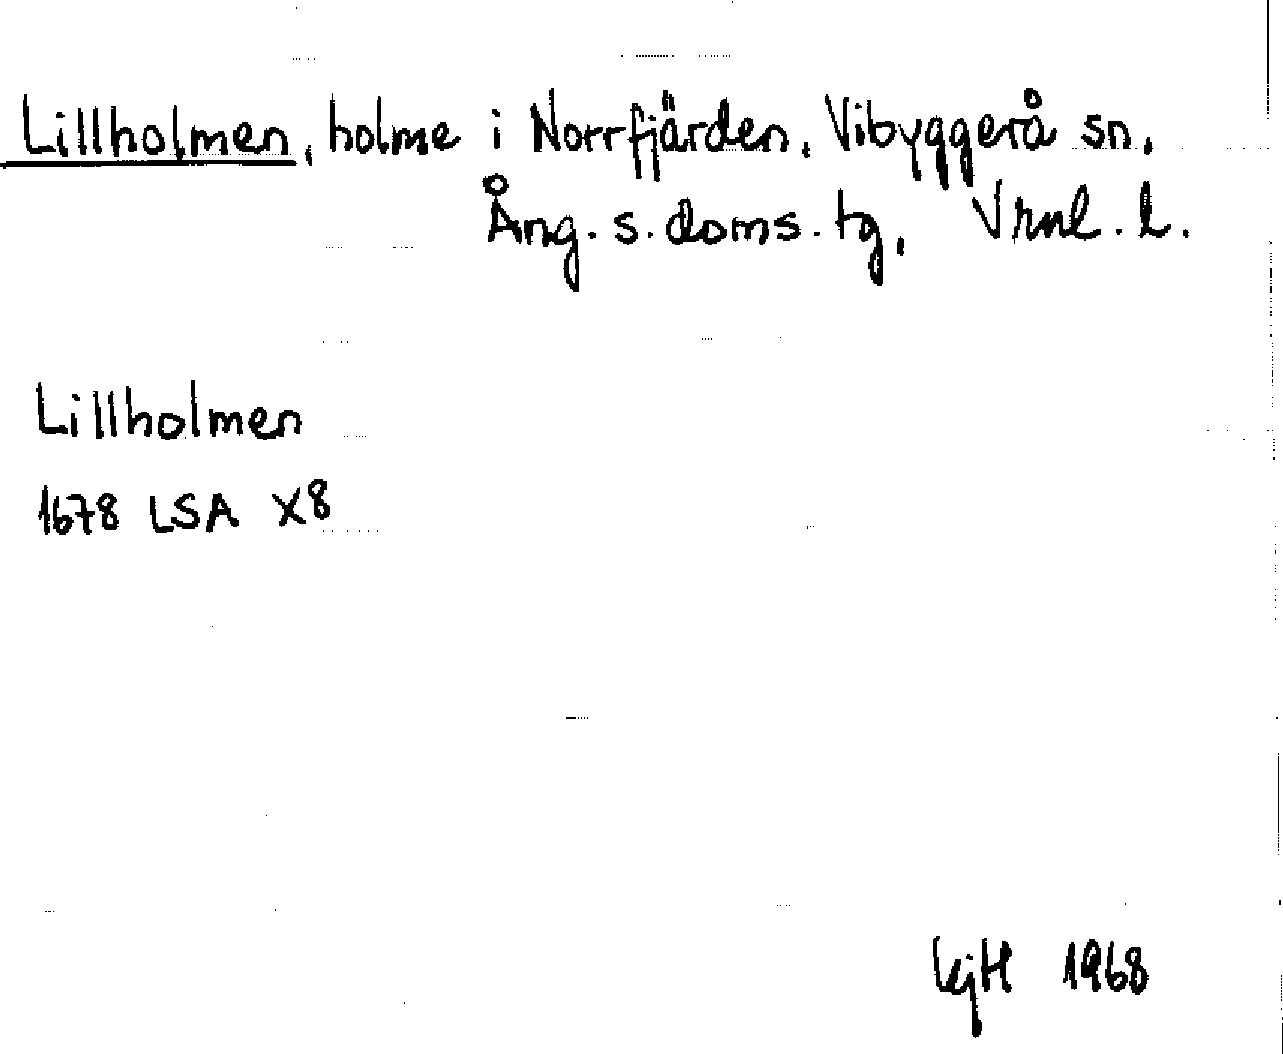 Lillholmen, holme i Norrfjärden, Vibyggerå sn,
Ång. s. doms. tg, Vrnl. l.
Lillholmen
1678 LSA X8
KjH 1968